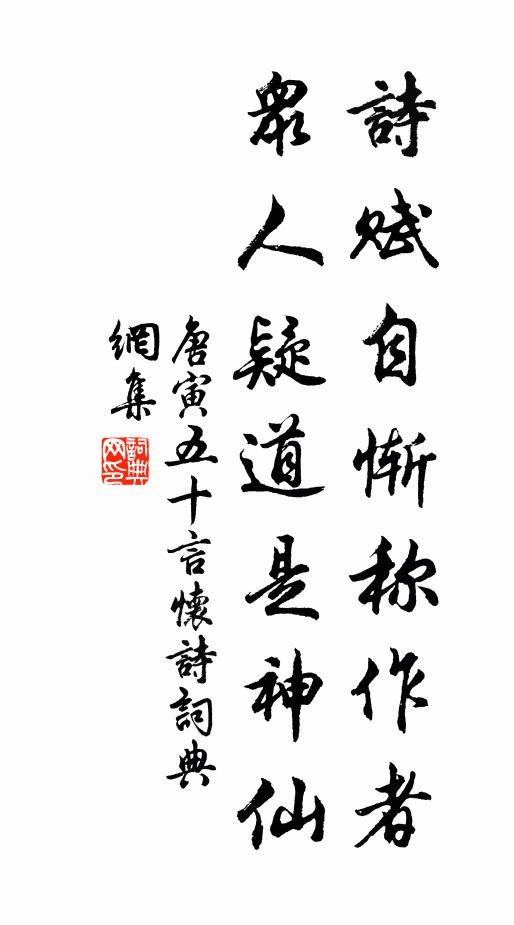 詩赋自惭称作者
眾人疑道是神仙
唐寅五十言懷詩詞典
網集
詞典网印